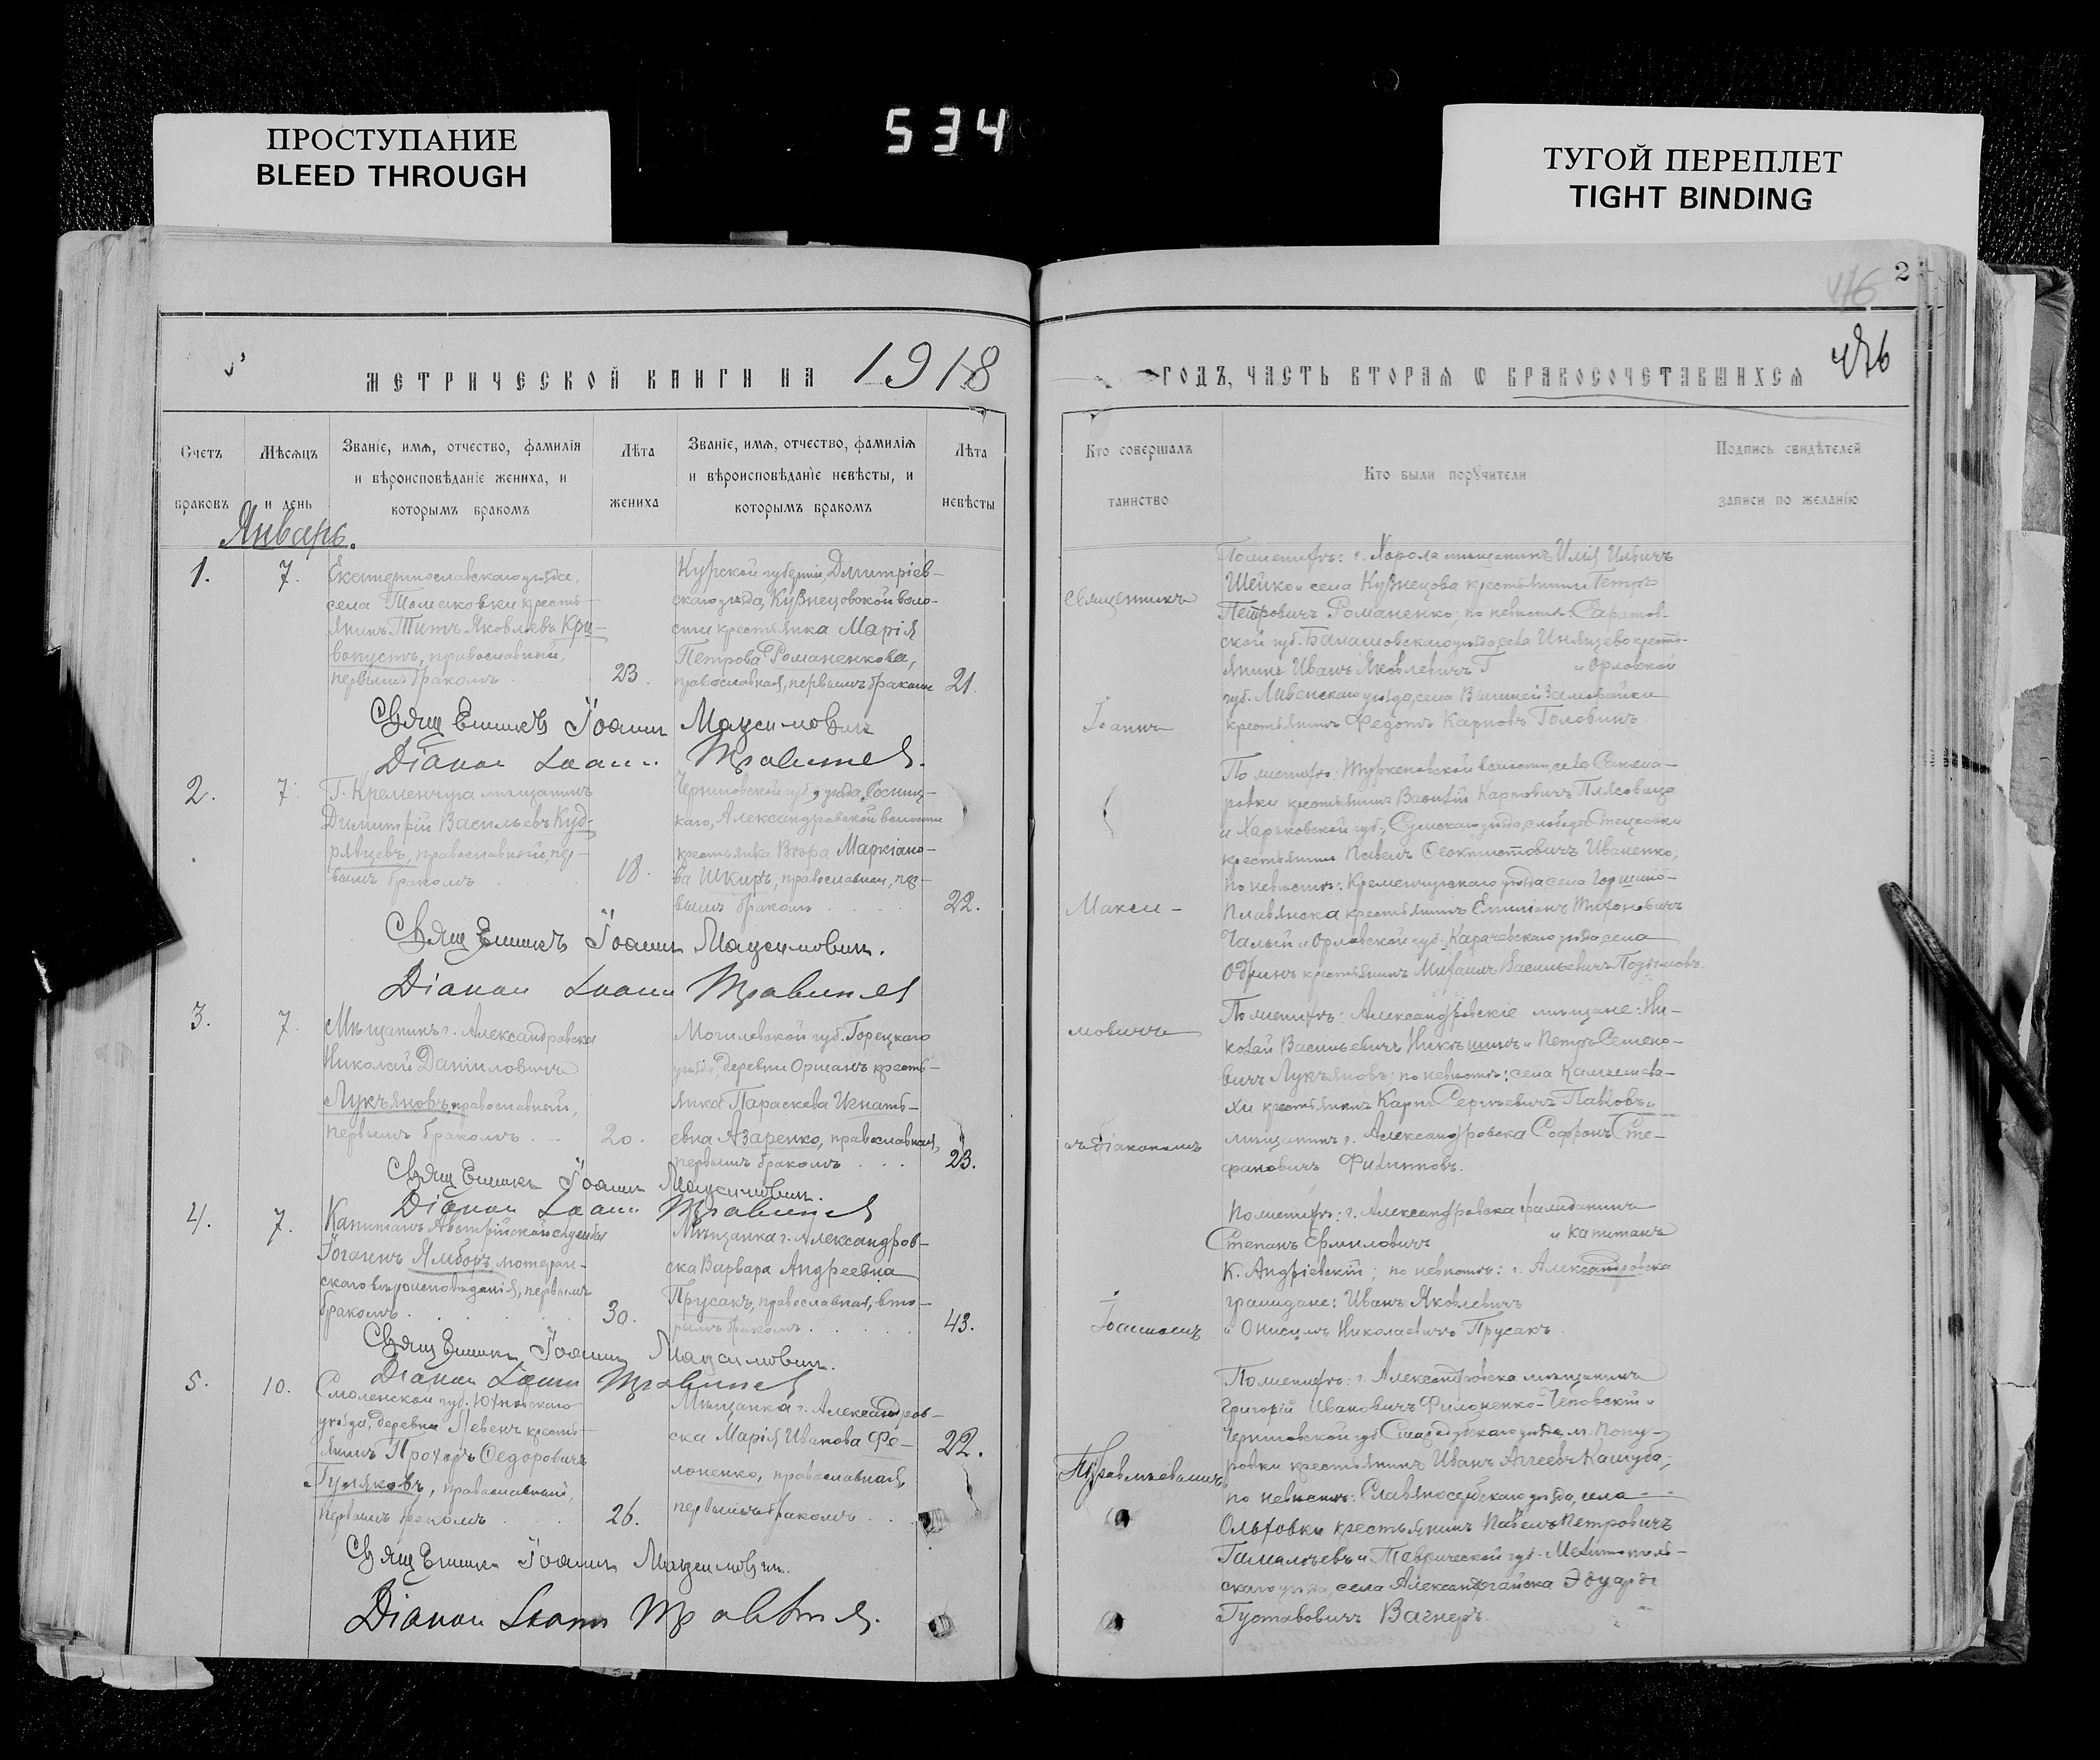 ПРОСТУПАНИЕ
BLEED THROUGH
534
ТУГОЙ ПЕРЕПЛЕТ
TIGHT BINDING
2
476
МЕТРИЧЕСКОЙ КНИГИ НА 1918
Счетъ
браковъ
Мѣсяцъ
и день
Званіе, имя, отчество, фамилія
и вѣроисповѣданіе жениха, и
которымъ бракомъ
Лѣта
жениха
Званіе, имя, отчество, фамилія
и вѣроисповѣданіе невѣсты, и
которымъ бракомъ
Лѣта
невѣсты
Январь.
1.
7.
Екатеринославскаго уѣзда,
села Томаковки кресть-
янинъ Титъ Яковлевъ Кри-
вопустъ, православный,
первымъ бракомъ
23.
Курской губерніи, Дмитріев-
скаго уѣзда, Кузнецовской воло-
сти крестьянка Марія
Петрова Романенкова,
православная, первымъ бракомъ
21.
Священникъ Іоаннъ Максимовичъ
Діаконъ Іоаннъ
2.
7.
Г. Кременчуга мѣщанинъ
Димитрій Васильевъ Куд-
рявцевъ, православный, пер-
вымъ бракомъ
18.
Черниговской губ., уѣзда, Сосниц-
каго, Александровской волости
крестьянка Вѣра Маркіано-
ва Шкиръ, православная, пер-
вымъ бракомъ
22.
Священникъ Іоаннъ Максимовичъ.
Діаконъ Іоаннъ
3.
7.
Мѣщанинъ г. Александровска
Николай Даніиловичъ
Лукъяновъ, православный,
первымъ бракомъ
20.
Могилевской губ. Горецкаго
уѣзда, деревни Оршанъ кресть-
янка Параскева Игнать-
евна Азаренко, православная,
первымъ бракомъ
23.
Священникъ Іоаннъ Максимовичъ.
Діаконъ Іоаннъ
4.
7.
Капитанъ Австрійской службы
Іоганнъ Ямборъ, лютеран-
скаго вѣроисповѣданія, первымъ
бракомъ
30.
Мѣщанка г. Александров-
ска Варвара Андреевна
Прусакъ, православная, вто-
рымъ бракомъ
43.
Священникъ Іоаннъ Максимовичъ.
Діаконъ Іоаннъ
5.
10.
Смоленской губ. Юхновскаго
уѣзда, деревни Левенъ кресть-
янинъ Прохоръ Ѳедоровичъ
Гуляковъ, православный,
первымъ бракомъ
26.
Мѣщанка г. Александров-
ска Марія Иванова Фи-
лоненко, православная,
первымъ бракомъ
22.
Священникъ Іоаннъ Максимовичъ.
Діаконъ Іоаннъ
ГОДЪ, ЧАСТЬ ВТОРАЯ Ѡ БРАКОСОЧЕТАВШИХСЯ
476
Кто совершалъ
таинство
Кто были поручители
Подпись свидѣтелей
записи по желанію
Священникъ
Іоаннъ
Макси-
мовичъ
съ діакономъ
Іоанномъ
По женихѣ: г. Хорола мѣщанинъ Илія Ильичъ
Шейко и села Кузнецова крестьянинъ Петръ
Петровичъ Романенко; по невѣстѣ: Саратов-
ской губ. Балашовскаго уѣзда, села кресть-
янинъ Иванъ Яковлевичъ Г и Орловской
губ. Ливенскаго уѣзда, села
крестьянинъ Федотъ Карповъ Головинъ.
По женихѣ: волости, села
крестьянинъ Василій Карповичъ
и Харьковской губ., Сумскаго уѣзда, слободы Стецковки
крестьянинъ Павелъ Ѳеоктистовичъ Иваненко;
по невѣстѣ: Кременчугскаго уѣзда села
крестьянинъ Емиліанъ Тихоновичъ
Чалый и Орловской губ. Карачевскаго уѣзда, села
Одринъ крестьянинъ Михаилъ Васильевичъ
По женихѣ: Александровскіе мѣщане: Ни-
колай Васильевичъ Никѣшинъ и Петръ Семено-
вичъ Лукъяновъ; по невѣстѣ: села Камышева-
хи крестьянинъ Карпъ Сергѣевичъ Павловъ и
мѣщанинъ г. Александровска Софронъ Сте-
фановичъ Филипповъ.
По женихѣ: г. Александровска гражданинъ
Степанъ Ермиловичъ и капитанъ
К. Андріевскій; по невѣстѣ: г. Александровска
граждане: Иванъ Яковлевичъ
и Онисимъ Николаевичъ Прусакъ.
По женихѣ: г. Александровска мѣщанинъ
Григорій Ивановичъ Филоненко-Чеповскій и
Черниговской губ. Стародубскаго уѣзда, м. Пону-
ровки крестьянинъ Иванъ Агеевъ Кашуба;
по невѣстѣ: Славяносербскаго уѣзда, села
Ольховки крестьянинъ Павелъ Петровичъ
Гамалѣевъ и Таврической губ. Мелитополь-
скаго уѣзда, села Эдуардъ
Густавовичъ Вагнеръ.